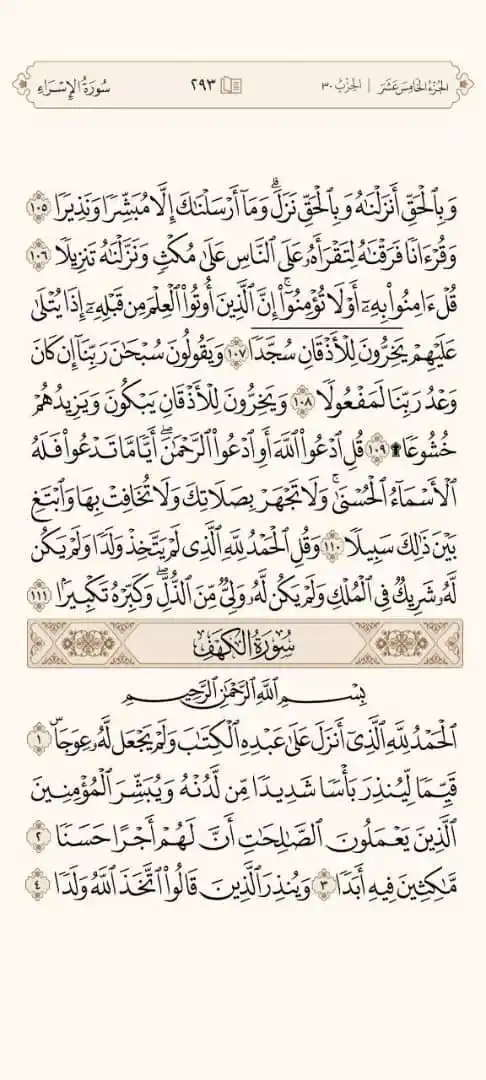 الجزء الخامس عشر | الحزب ٣٠
٢٩٣
سورة الإسراء
وَبِٱلْحَقِّ أَنزَلْنَٰهُ وَبِٱلْحَقِّ نَزَلَ ۗ وَمَآ أَرْسَلْنَٰكَ إِلَّا مُبَشِّرًا وَنَذِيرًا ١٠٥
وَقُرْءَانًا فَرَقْنَٰهُ لِتَقْرَأَهُۥ عَلَى ٱلنَّاسِ عَلَىٰ مُكْثٍ وَنَزَّلْنَٰهُ تَنزِيلًا ١٠٦
قُلْ ءَامِنُوا۟ بِهِۦٓ أَوْ لَا تُؤْمِنُوٓا۟ ۚ إِنَّ ٱلَّذِينَ أُوتُوا۟ ٱلْعِلْمَ مِن قَبْلِهِۦٓ إِذَا يُتْلَىٰ
عَلَيْهِمْ يَخِرُّونَ لِلْأَذْقَانِ سُجَّدًا ١٠٧ وَيَقُولُونَ سُبْحَٰنَ رَبِّنَآ إِن كَانَ
وَعْدُ رَبِّنَا لَمَفْعُولًا ١٠٨ وَيَخِرُّونَ لِلْأَذْقَانِ يَبْكُونَ وَيَزِيدُهُمْ
خُشُوعًا ۩ ١٠٩ قُلِ ٱدْعُوا۟ ٱللَّهَ أَوِ ٱدْعُوا۟ ٱلرَّحْمَٰنَ ۖ أَيًّا مَّا تَدْعُوا۟ فَلَهُ
ٱلْأَسْمَآءُ ٱلْحُسْنَىٰ ۚ وَلَا تَجْهَرْ بِصَلَاتِكَ وَلَا تُخَافِتْ بِهَا وَٱبْتَغِ
بَيْنَ ذَٰلِكَ سَبِيلًا ١١٠ وَقُلِ ٱلْحَمْدُ لِلَّهِ ٱلَّذِى لَمْ يَتَّخِذْ وَلَدًا وَلَمْ يَكُن
لَّهُۥ شَرِيكٌ فِى ٱلْمُلْكِ وَلَمْ يَكُن لَّهُۥ وَلِىٌّ مِّنَ ٱلذُّلِّ ۖ وَكَبِّرْهُ تَكْبِيرًۢا ١١١
سُورَةُ الكَهْفِ
بِسْمِ ٱللَّهِ ٱلرَّحْمَٰنِ ٱلرَّحِيمِ
ٱلْحَمْدُ لِلَّهِ ٱلَّذِىٓ أَنزَلَ عَلَىٰ عَبْدِهِ ٱلْكِتَٰبَ وَلَمْ يَجْعَل لَّهُۥ عِوَجَا ۜ ١
قَيِّمًا لِّيُنذِرَ بَأْسًا شَدِيدًا مِّن لَّدُنْهُ وَيُبَشِّرَ ٱلْمُؤْمِنِينَ
ٱلَّذِينَ يَعْمَلُونَ ٱلصَّٰلِحَٰتِ أَنَّ لَهُمْ أَجْرًا حَسَنًا ٢
مَّٰكِثِينَ فِيهِ أَبَدًا ٣ وَيُنذِرَ ٱلَّذِينَ قَالُوا۟ ٱتَّخَذَ ٱللَّهُ وَلَدًا ٤